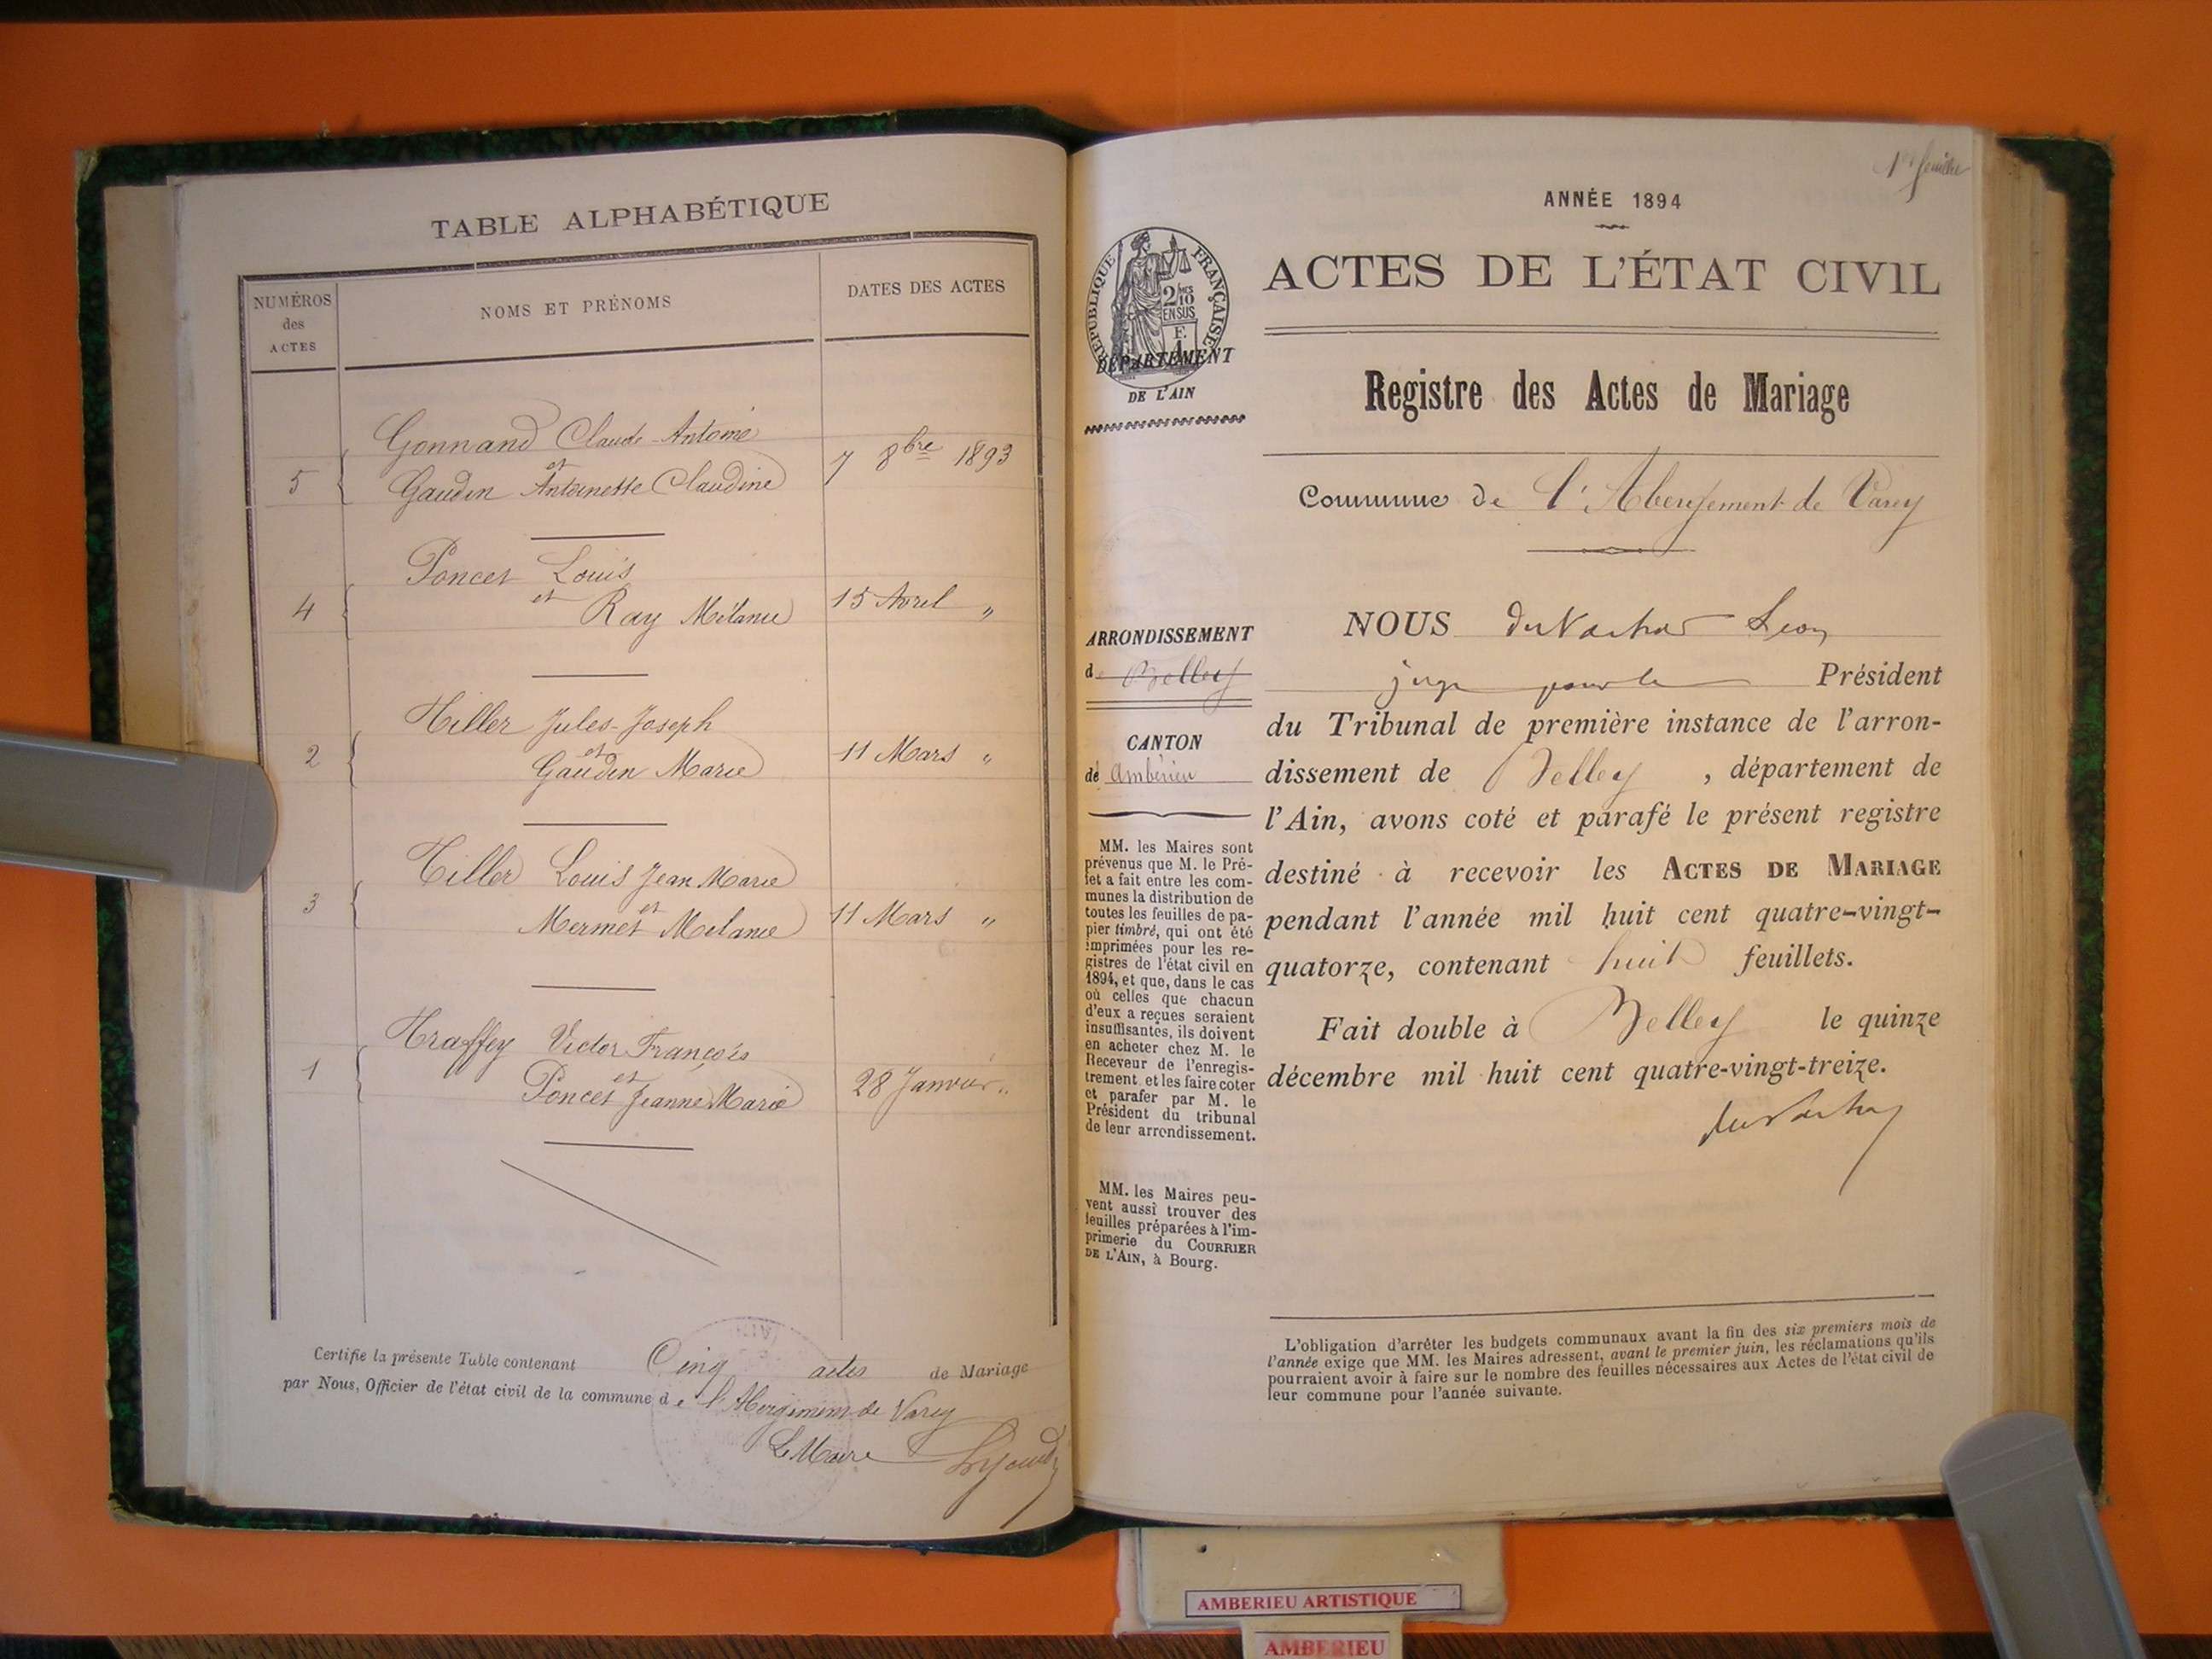 TABLE ALPHABÉTIQUE
NUMÉROS
des
ACTES
NOMS ET PRÉNOMS
DATES DES ACTES
Gonnand Claude-Antoine
et
5 Gaudin Antoinette Claudine 7 8bre 1893
Poncet Louis
et
4 Ray Mélanie 15 Avril "
Tiller Jules-Joseph
et
2 Gaudin Marie 11 Mars "
Tiller Louis Jean Marie
et
3 Mermet Mélanie 11 Mars "
Traffey Victor François
et
1 Poncet Jeanne Marie 28 Janvier "
Certifie la présente Table contenant Cinq actes de Mariage
par Nous, Officier de l'état civil de la commune de l'Abergement de Varey
Le Maire
1er feuillet
ANNÉE 1894
ACTES DE L'ÉTAT CIVIL
RÉPUBLIQUE FRANÇAISE
2/10
EN SUS
DÉPARTEMENT
DE L'AIN
Registre des Actes de Mariage
Commune de l'Abergement de Varey
ARRONDISSEMENT
de Belley
CANTON
de Ambérieu
MM. les Maires sont
prévenus que M. le Pré-
fet a fait entre les com-
munes la distribution de
toutes les feuilles de pa-
pier timbré, qui ont été
imprimées pour les re-
gistres de l'état civil en
1894, et que, dans le cas
où celles que chacun
d'eux a reçues seraient
insuffisantes, ils doivent
en acheter chez M. le
Receveur de l'enregis-
trement et les faire coter
et parafer par M. le
Président du tribunal
de leur arrondissement.
MM. les Maires peu-
vent aussi trouver des
feuilles préparées à l'im-
primerie du COURRIER
DE L'AIN, à Bourg.
NOUS Léon
juge pour le Président
du Tribunal de première instance de l'arron-
dissement de Belley, département de
l'Ain, avons coté et parafé le présent registre
destiné à recevoir les ACTES DE MARIAGE
pendant l'année mil huit cent quatre-vingt-
quatorze, contenant huit feuillets.
Fait double à Belley le quinze
décembre mil huit cent quatre-vingt-treize.
L'obligation d'arrêter les budgets communaux avant la fin des six premiers mois de
l'année exige que MM. les Maires adressent, avant le premier juin, les réclamations qu'ils
pourraient avoir à faire sur le nombre des feuilles nécessaires aux Actes de l'état civil de
leur commune pour l'année suivante.
AMBERIEU ARTISTIQUE
AMBERIEU